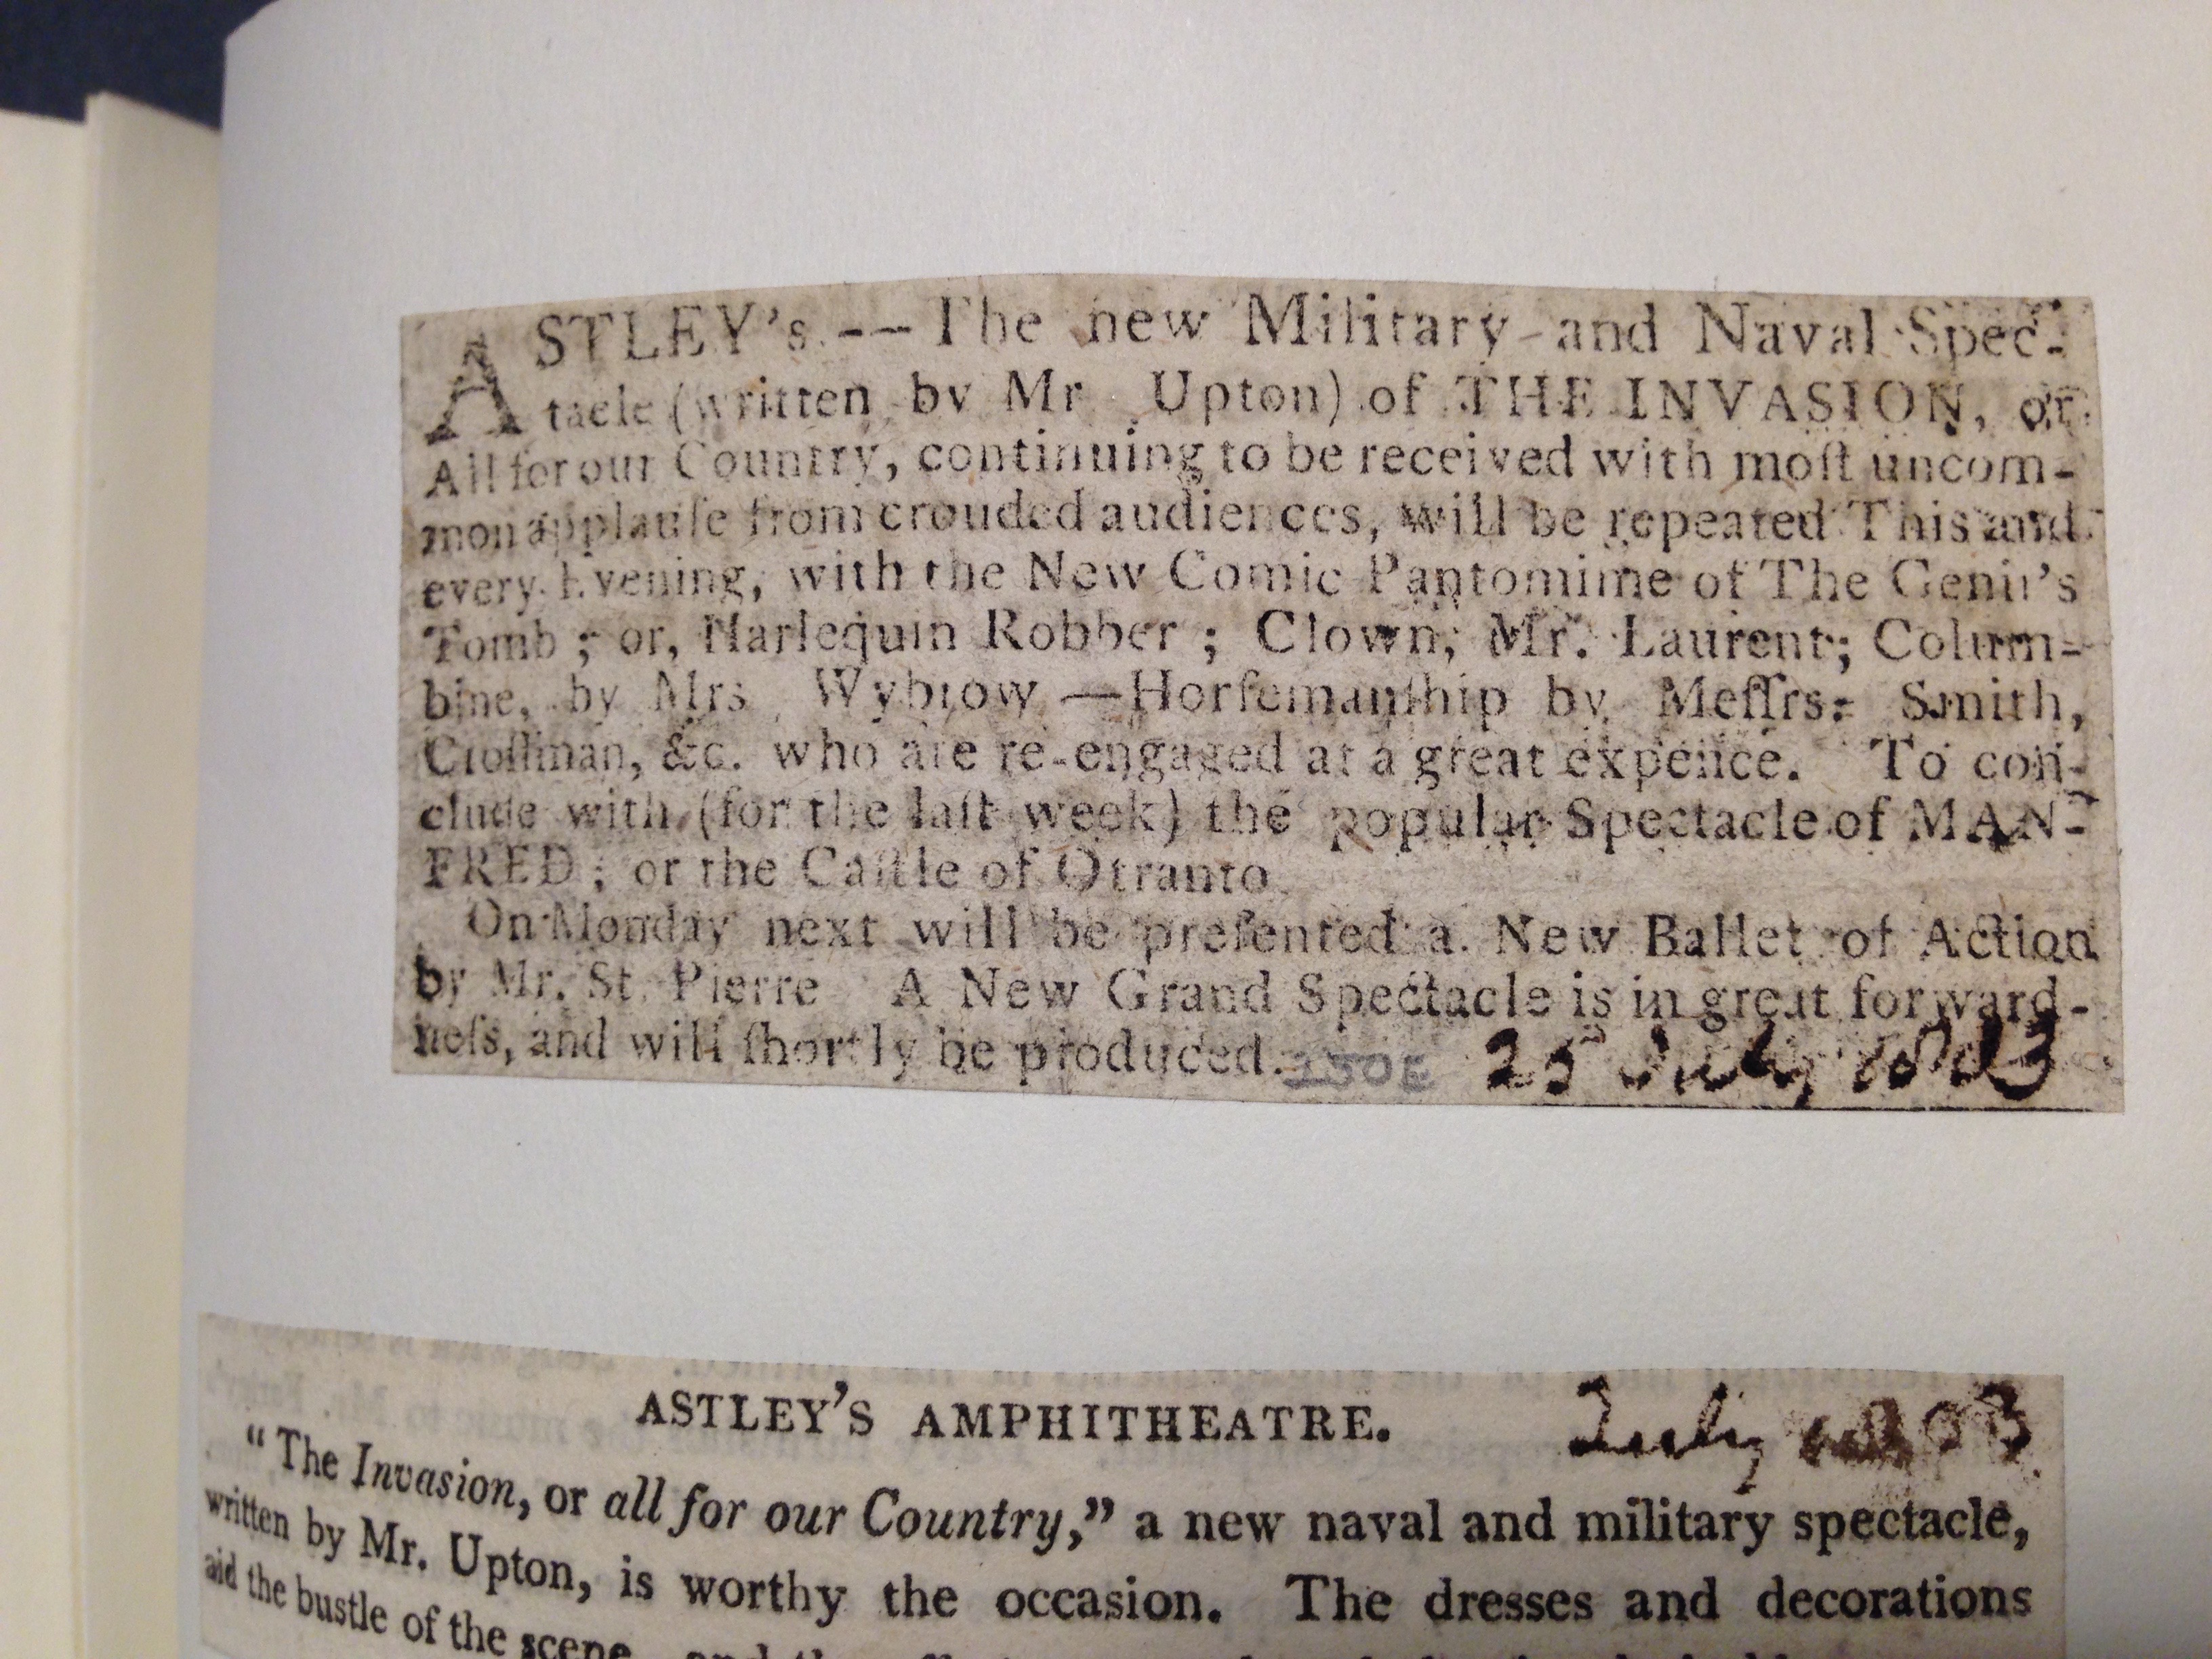 ASTLEY's.--The new Military and Naval Spec-
tacle (written by Mr Upton) of THE INVASION, or
All for our Country, continuing to be received with moſt uncom-
mon applauſe from crouded audiences, will be repeated This and
every Evening, with the New Comic Pantomime of The Genii's
Tomb ; or, Harlequin Robber ; Clown, Mr. Laurent; Colum-
bine, by Mrs Wybrow —Horſemanſhip by Meſſrs. Smith,
Croſſman, &c. who are re-engaged at a great expence. To con-
clude with (for the laſt week) the popular Spectacle of MAN-
FRED ; or the Caſtle of Otranto
On Monday next will be preſented a New Ballet of Action
by Mr. St. Pierre A New Grand Spectacle is in great forward-
neſs, and will ſhortly be produced.
25 July 1803
ASTLEY'S AMPHITHEATRE. July 1803
"The Invasion, or all for our Country," a new naval and military spectacle,
written by Mr. Upton, is worthy the occasion. The dresses and decorations
aid the bustle of the scene